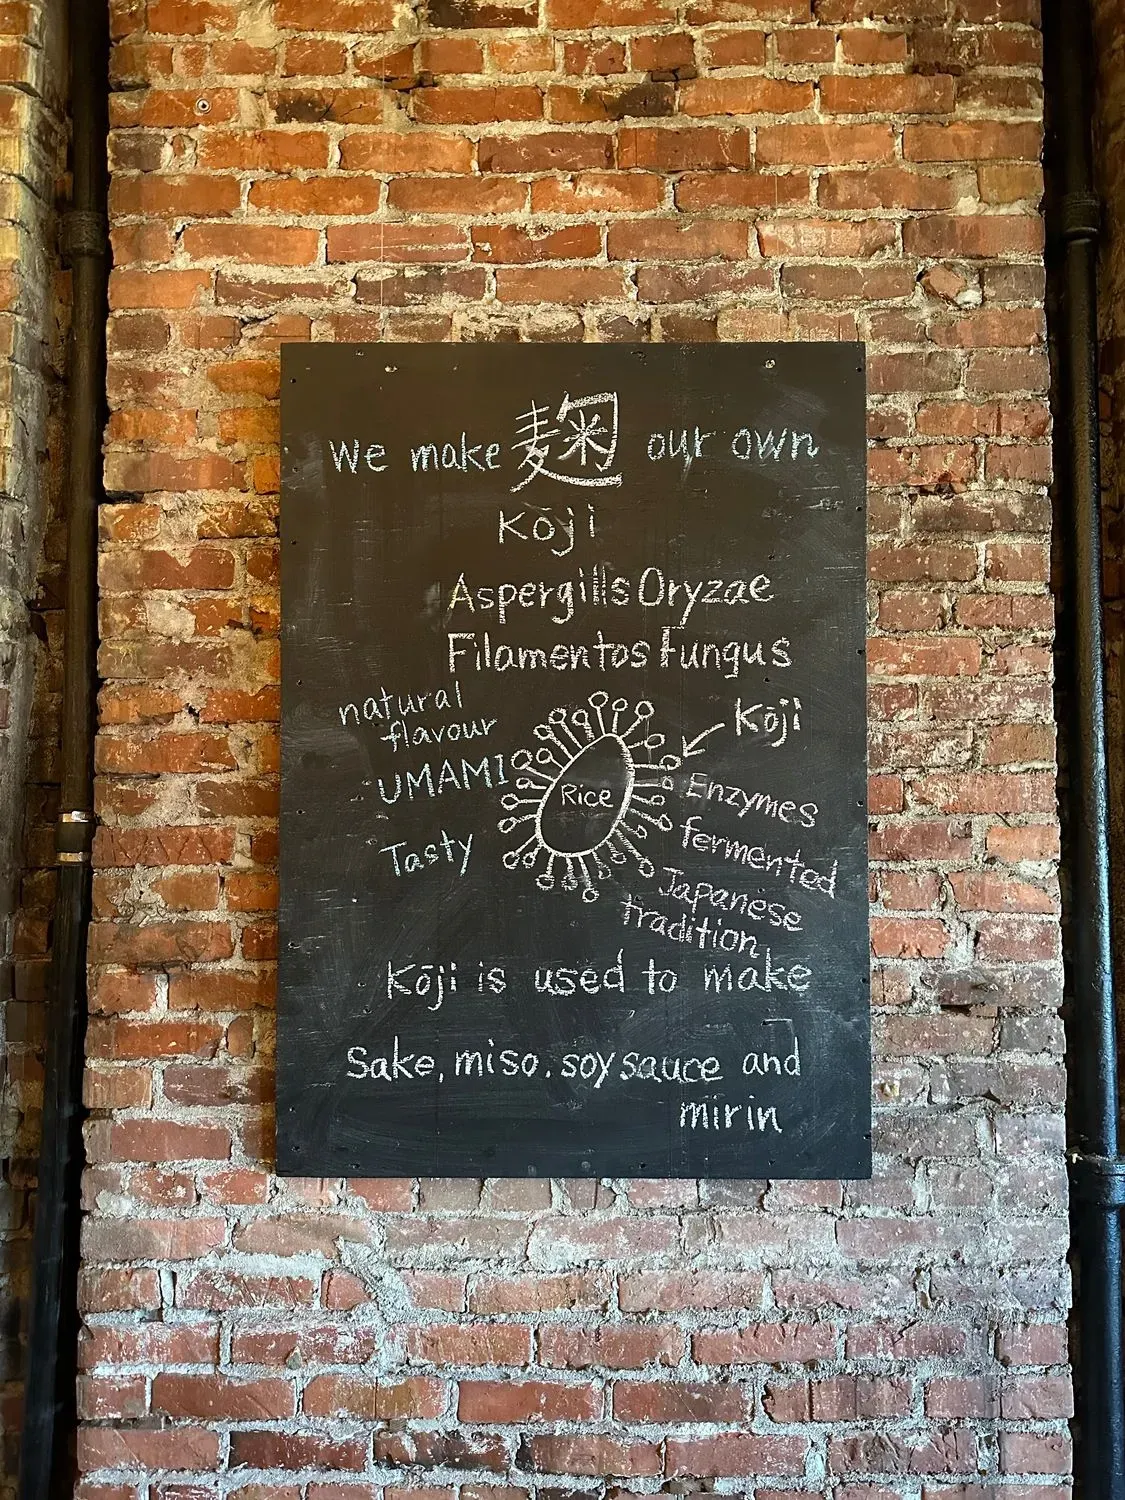 We make 麹 our own
Kōji
Aspergills Oryzae
Filamentos Fungus
natural
flavour
UMAMI
Tasty
Rice
Kōji
Enzymes
fermented
Japanese
tradition
Kōji is used to make
Sake, miso. soy sauce and
mirin